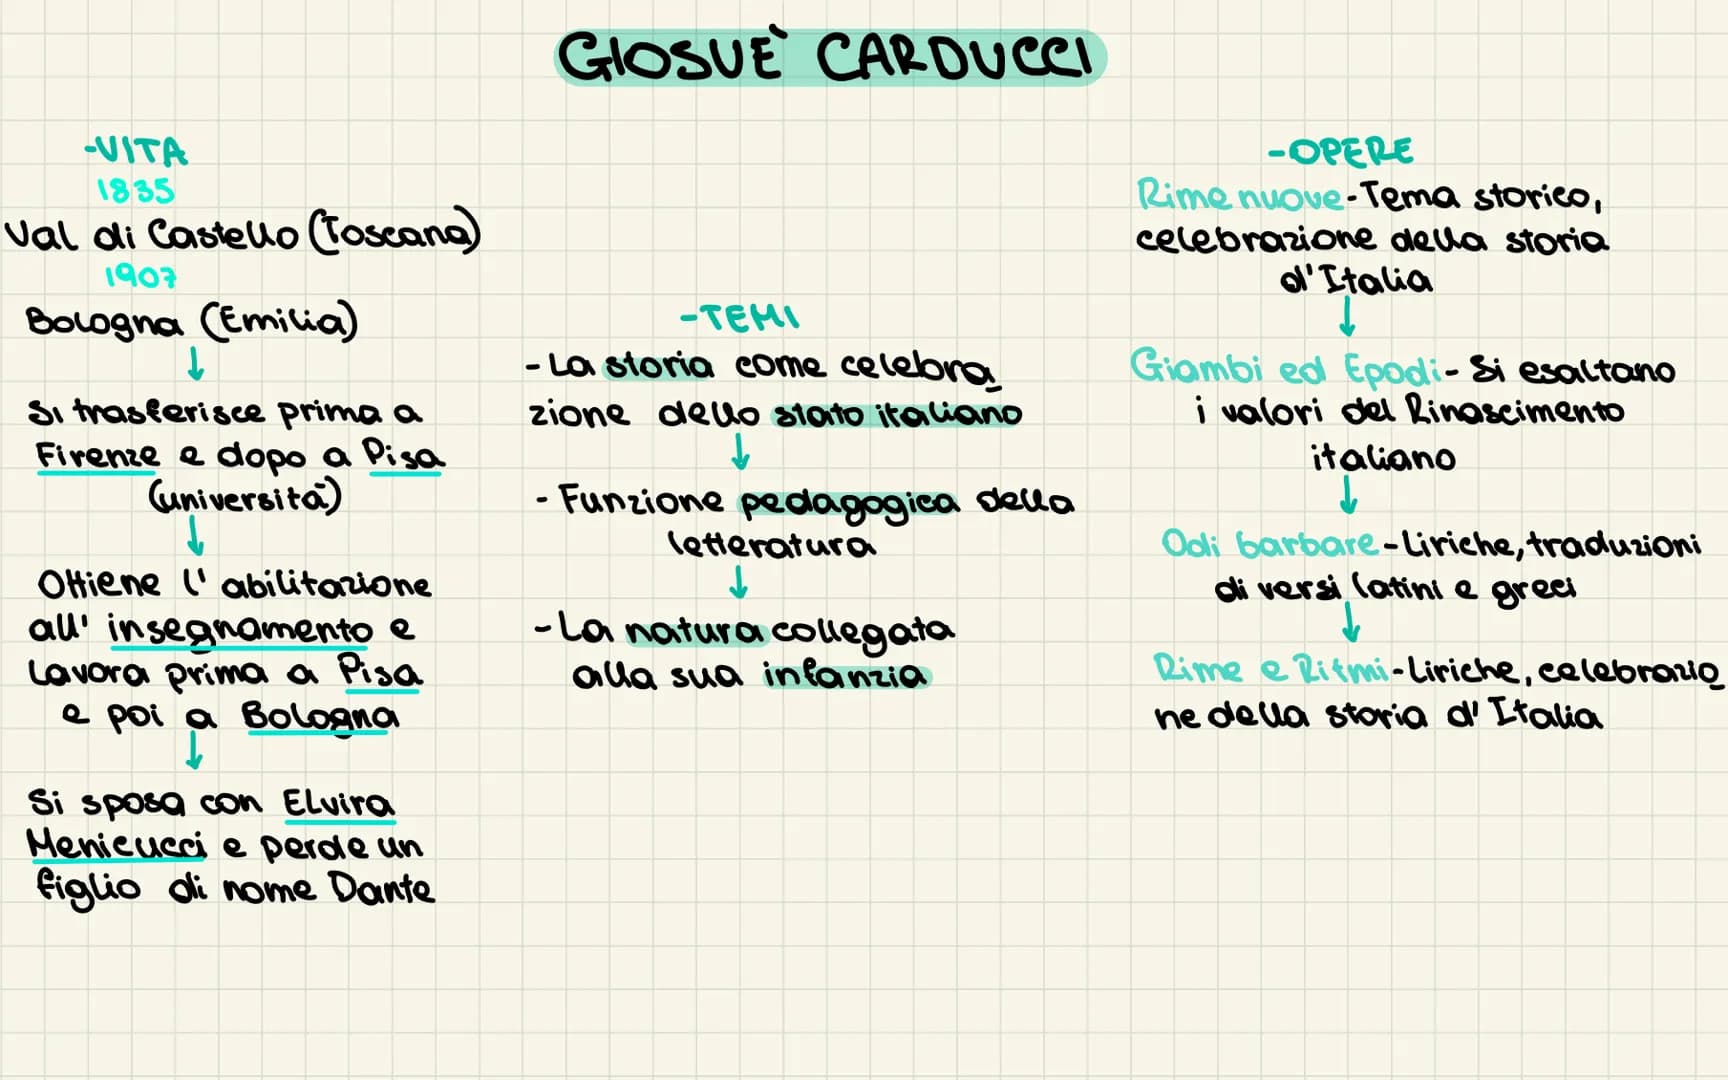 GIOSUÈ CARDUCCI
-VITA
1835
Val di Castello (Toscana)
1907
Bologna (Emilia)
↓
Si trasferisce prima a
Firenze e dopo a Pisa
(università)
↓
Ottiene l'abilitazione
all'insegnamento e
lavora prima a Pisa
e poi a Bologna
↓
Si sposa con Elvira
Menicucci e perde un
figlio di nome Dante
-TEMI
- La storia come celebra
zione dello stato italiano
↓
- Funzione pedagogica della
letteratura
↓
- La natura collegata
alla sua infanzia
-OPERE
Rime nuove - Tema storico,
celebrazione della storia
d'Italia
↓
Giambi ed Epodi - Si esaltano
i valori del Rinascimento
italiano
↓
Odi barbare - Liriche, traduzioni
di versi latini e greci
↓
Rime e Ritmi - Liriche, celebrazio
ne della storia d'Italia